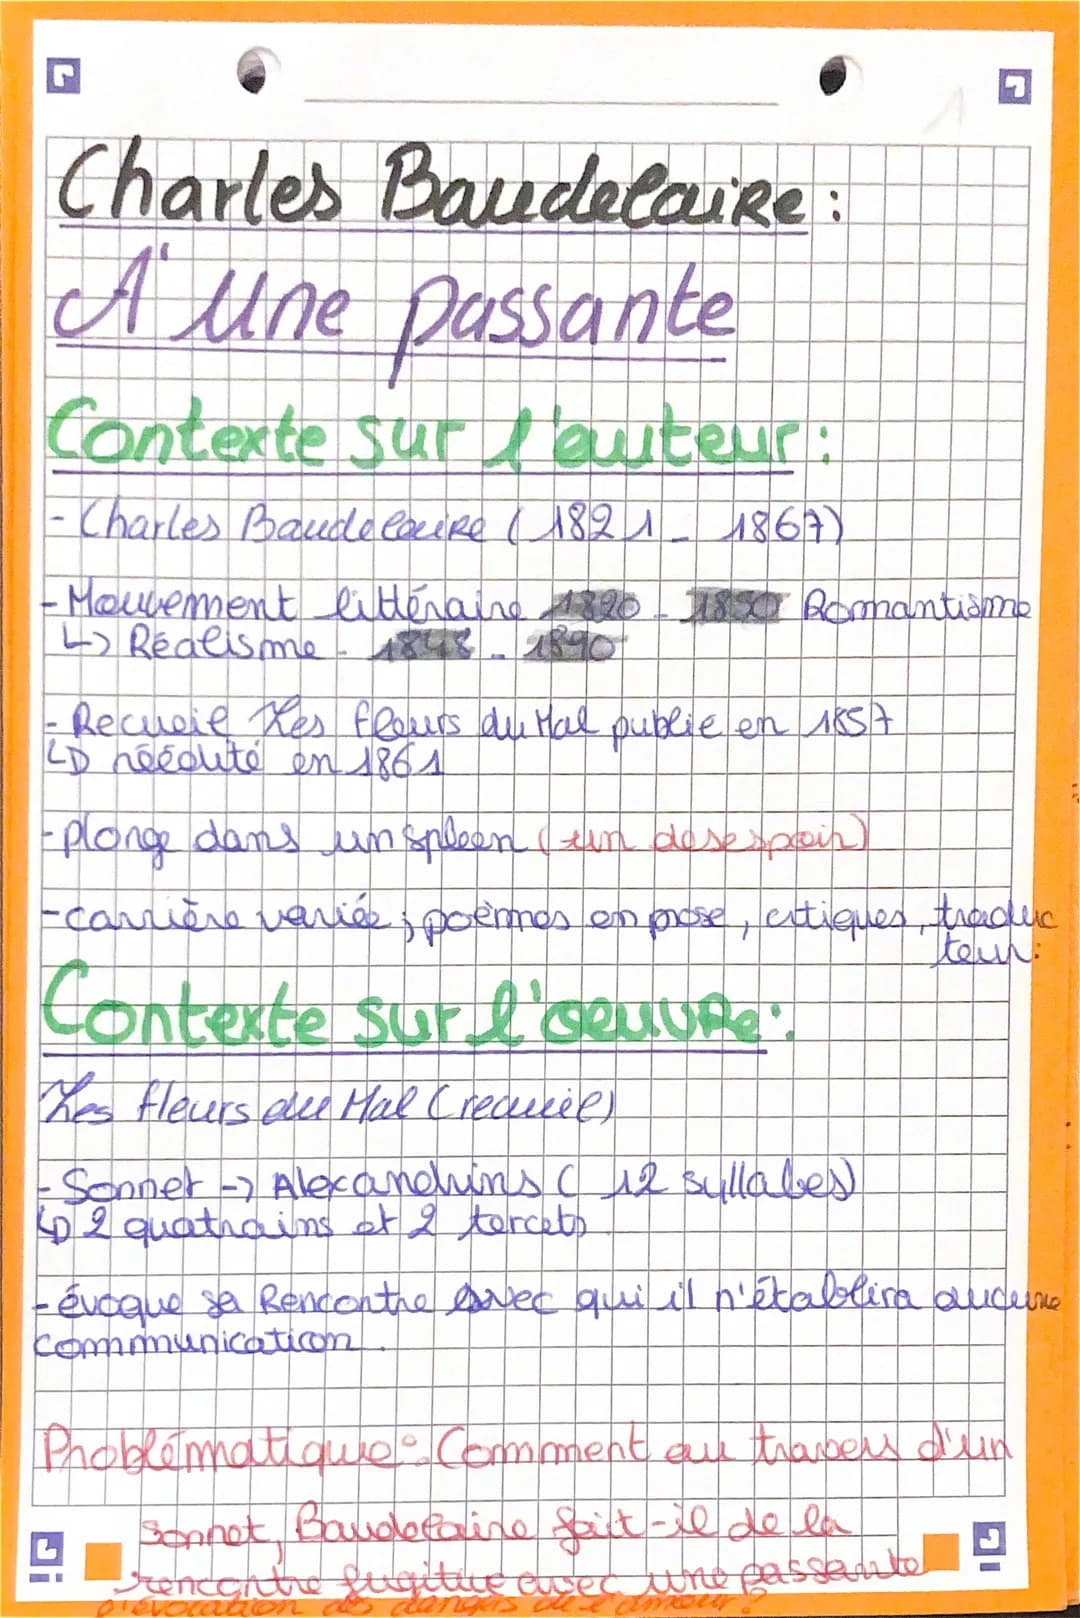 Charles Baudelaire :
A' Une passante
Contexte sur l'auteur :
- Charles Baudelaire ( 1821 - 1867)
- Mouvement littéraire 1820 - 1850 Romantisme
↳ Réalisme - 1848 - 1890
- Recueil Les fleurs du Mal publie en 1857
↳ réédité en 1861
- plonge dans un spleen (un desespoir)
- carrière variée ; poèmes en prose, critiques, traduc
teur.
Contexte sur l'oeuvre :
Les fleurs du Mal (recueil)
- Sonnet -> Alexandrins ( 12 syllabes)
↳ 2 quatrains et 2 tercets
- évoque sa Rencontre avec qui il n'établira aucune
communication.
Problématique : Comment au travers d'un
sonnet, Baudelaire fait-il de la
rencontre fugitive avec une passante
l'évocation des dangers de l'amour ?